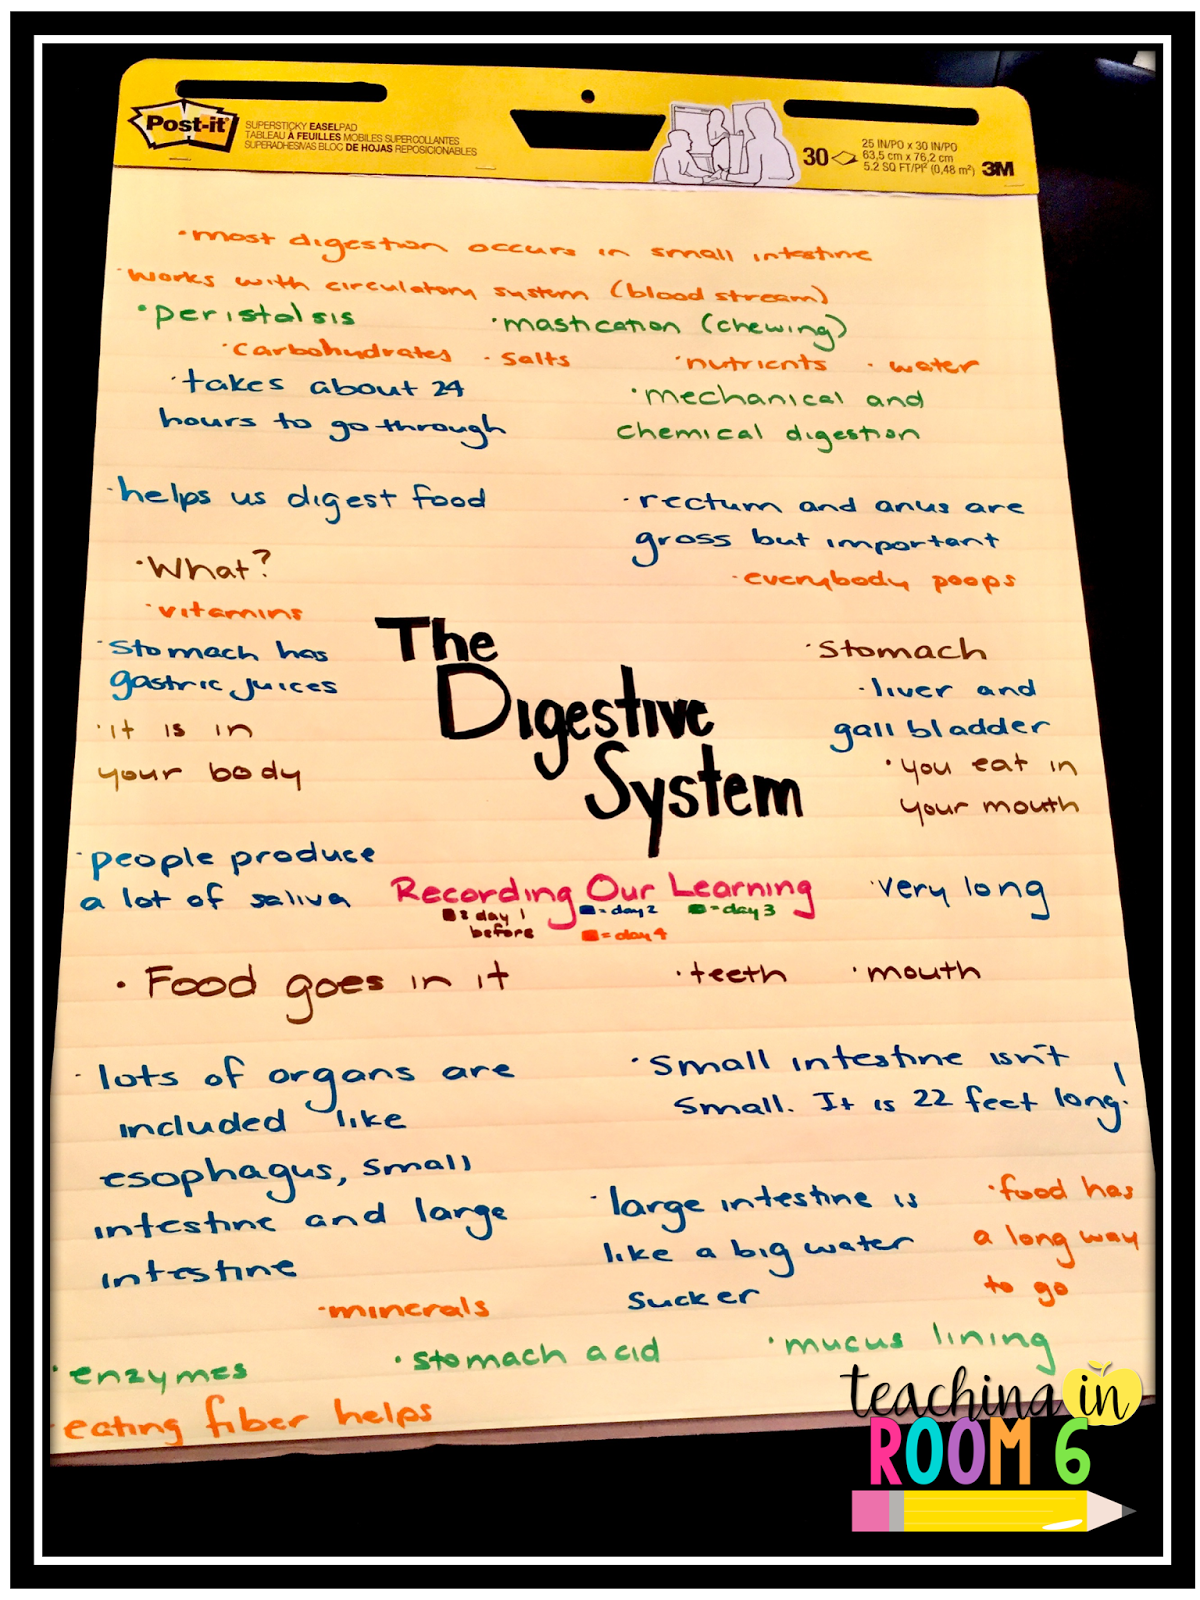 Post-it
SUPERSTICKY EASELPAD
TABLEAU À FEUILLES MOBILES SUPERCOLLANTES
SUPERADHESIVAS BLOC DE HOJAS REPOSICIONABLES
30
25 IN/PO x 30 IN/PO
63,5 cm x 76,2 cm
5.2 SQ FT/PI² (0,48 m²)
3M
·most digestion occurs in small intestine
·works with circulatory system (blood stream)
·peristalsis ·mastication (chewing)
·carbohydrates ·salts ·nutrients ·water
·takes about 24
hours to go through
·mechanical and
chemical digestion
·helps us digest food
·rectum and anus are
gross but important
·everybody poops
·What?
·vitamins
·stomach has
gastric juices
·it is in
your body
The
Digestive
System
·stomach
·liver and
gall bladder
·you eat in
your mouth
·people produce
a lot of saliva
Recording Our Learning
= day 1
before
= day 2
= day 3
= day 4
·very long
·Food goes in it
·teeth ·mouth
·lots of organs are
included like
esophagus, small
intestine and large
intestine
·small intestine isn't
small. It is 22 feet long!
·large intestine is
like a big water
sucker
·food has
a long way
to go
·minerals
·enzymes ·stomach acid ·mucus lining
·eating fiber helps
teaching in
ROOM 6